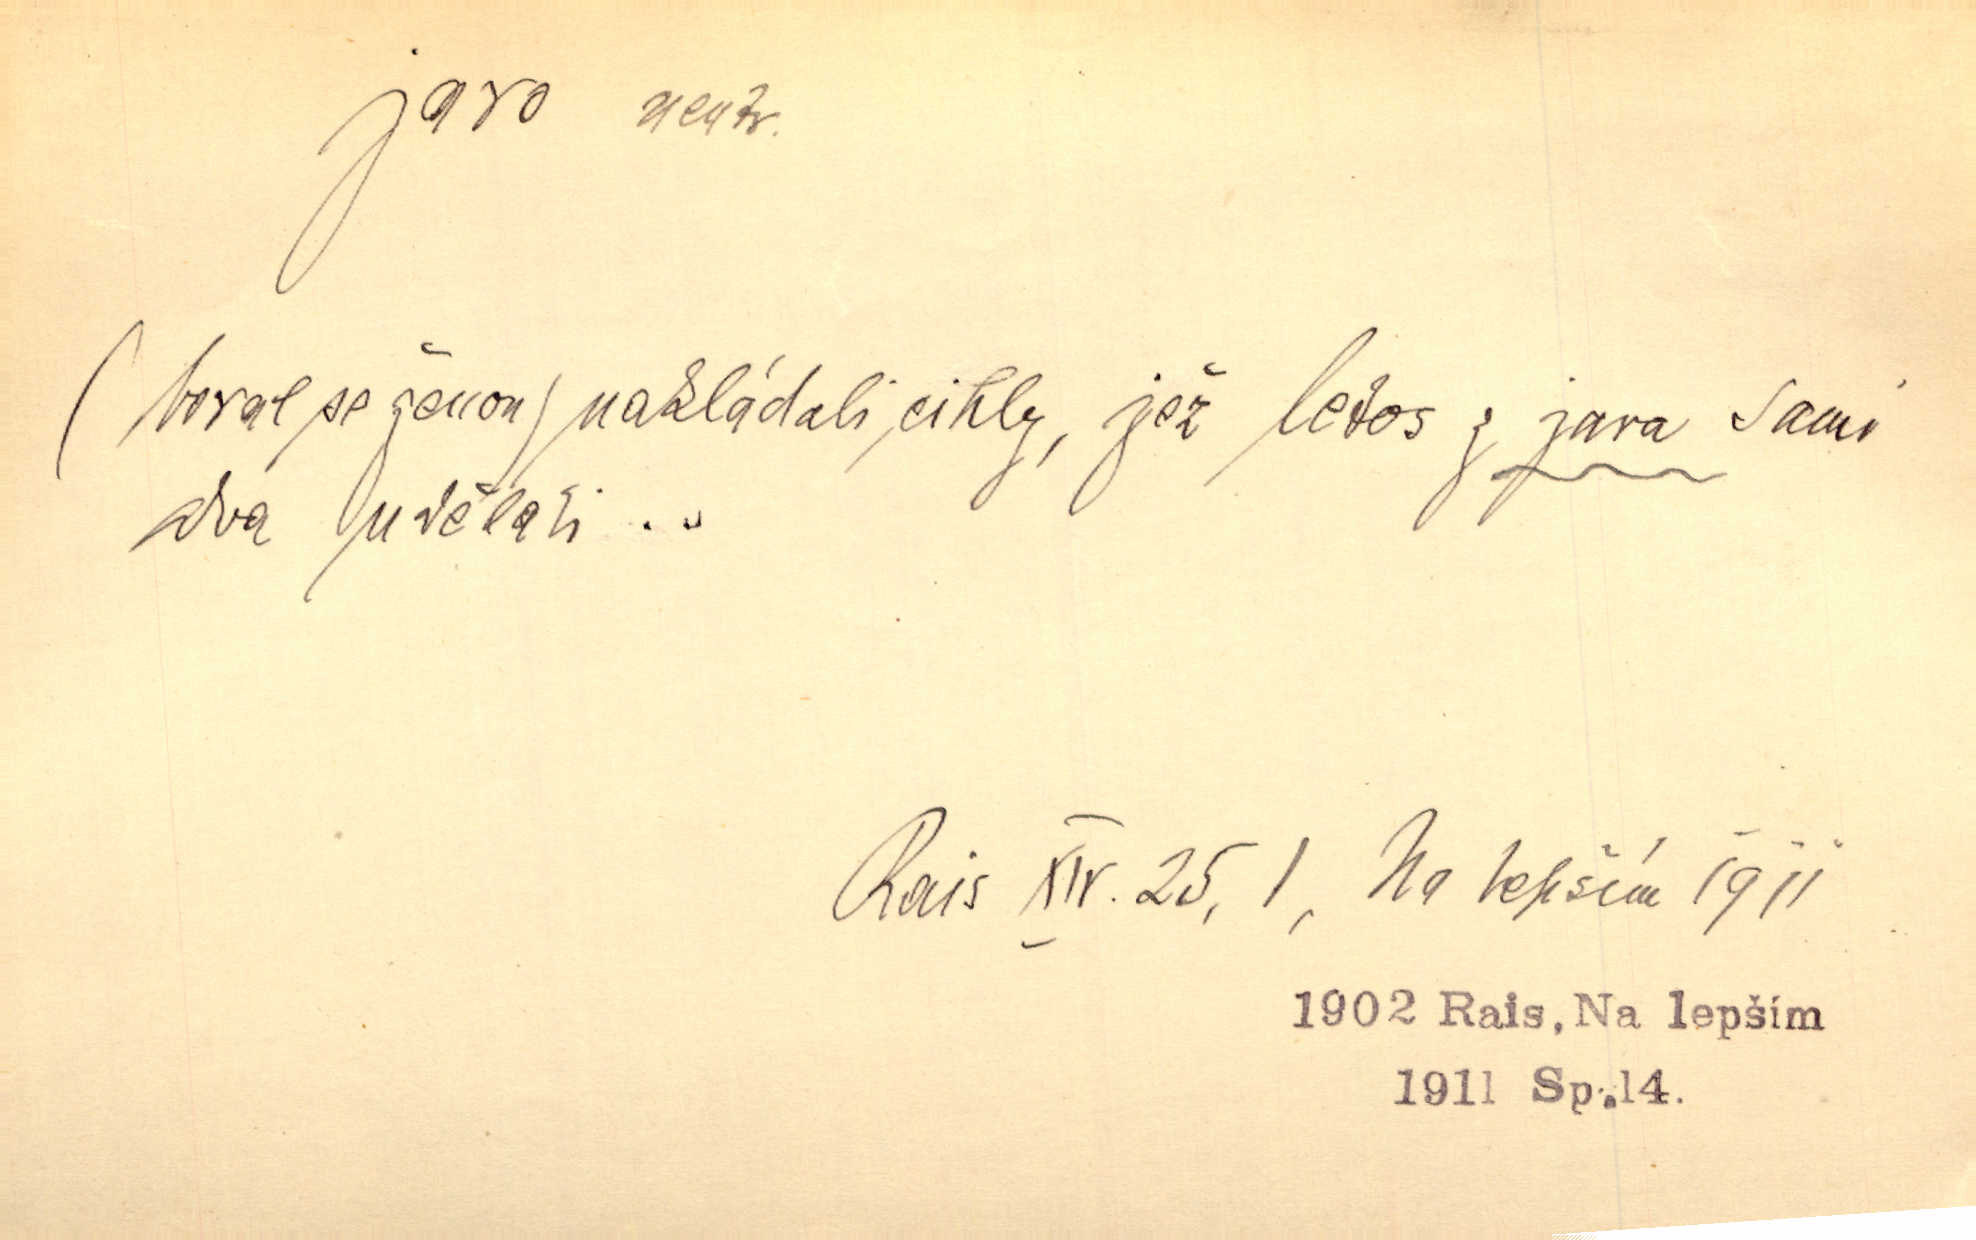 jaro neutr.
(Koval se ženou) nakládali cihly, jež letos z jara sami
dva udělali ..
Rais XIV. 25, 1, Na lepším 1911
1902 Rais, Na lepším
1911 Sp. 14.